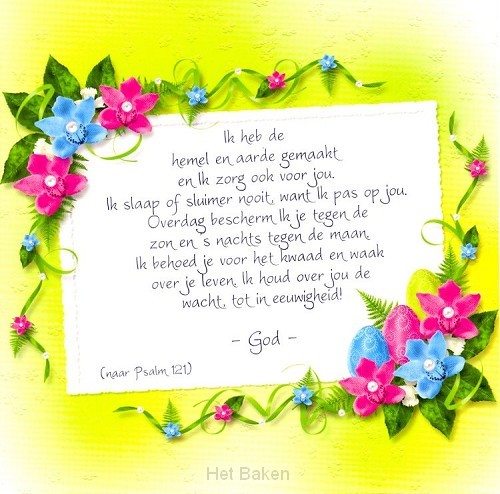 Ik heb de
hemel en aarde gemaakt
en Ik zorg ook voor jou.
Ik slaap of sluimer nooit, want Ik pas op jou.
Overdag bescherm Ik je tegen de
zon en s nachts tegen de maan.
Ik behoed je voor het kwaad en waak
over je leven. Ik houd over jou de
wacht, tot in eeuwigheid!
- God -
(naar Psalm 121)
Het Baken